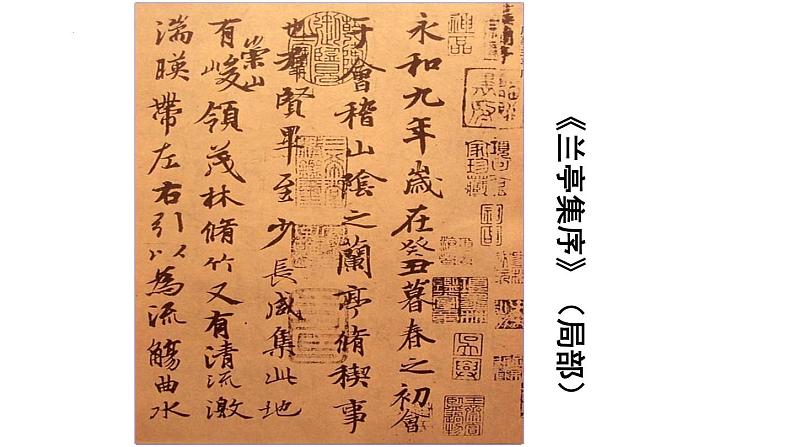 《兰亭集序》（局部）
永和九年歳在癸丑暮春之初會
于會稽山陰之蘭亭脩稧事
也羣賢畢至少長咸集此地
有崇山峻領茂林脩竹又有清流激
湍暎帶左右引以為流觴曲水